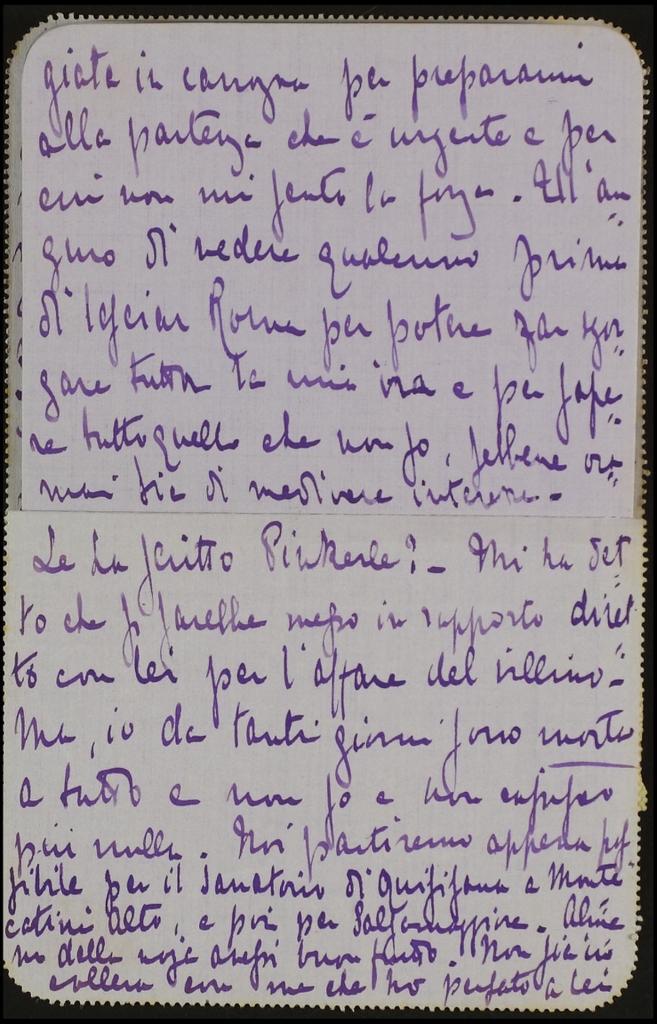 giata in carrozza per prepararmi
alla partenza che è urgente e per
cui non mi sento la forza. M'au=
guro di vedere qualcuno prima
di lasciar Roma per potere far sgor=
gare tutta la mia ira e per sape=
re tutto quello che non so, sebbene or=
mai sia di mediocre interesse.
Le ha scritto Pinkerle? - Mi ha det=
to che si sarebbe messo in rapporto diret
to con lei per l'affare del villino.=
Ma, io da tanti giorni sono morta
a tutto e non so e non capisco
più nulla. Noi partiremo appena pos
sibile per il Sanatorio di Quisisana a Monte
catini alto, e poi per Salsomaggiore. Alme
no della noja avessi buon frutto. Non sia in
collera con me che ho pensato a lei